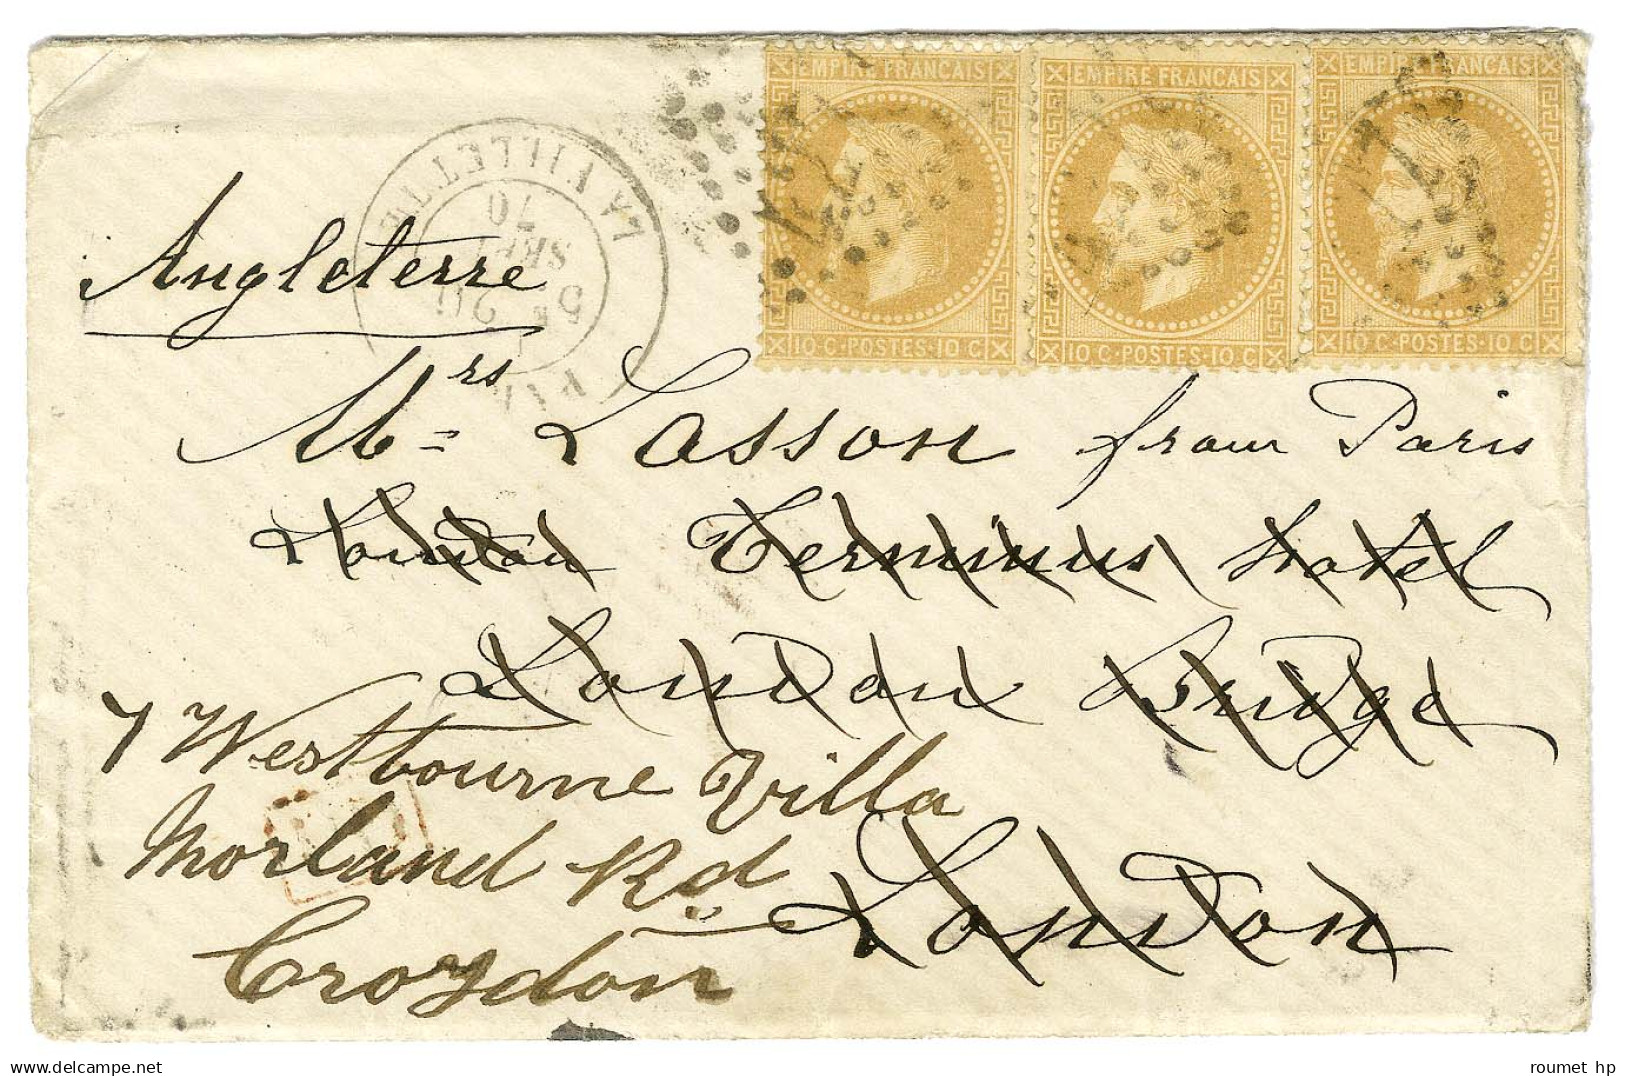 EMPIRE FRANCAIS EMPIRE FRANCAIS EMPIRE FRANCAIS
10 C·POSTES·10 C 10 C·POSTES·10 C 10 C·POSTES·10 C
LA VILLETTE
PARIS
5E
26
SEPT
70
Angleterre
Mrs Lasson from Paris
London Terminus Hotel
London Bridge
London
7 Westbourne Villa
Morland Rd
Croydon
roumet hp